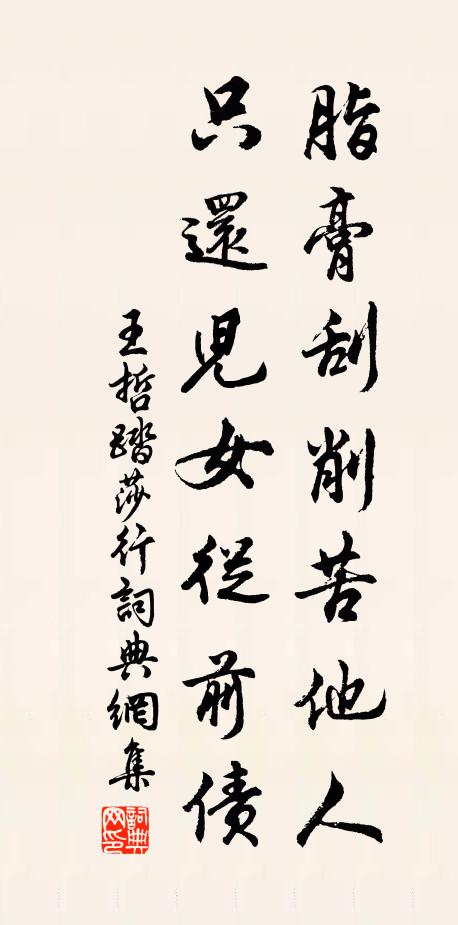 脂膏刮削苦他人
只還児女從前債
王哲踏莎行詞典網集
詞典网印